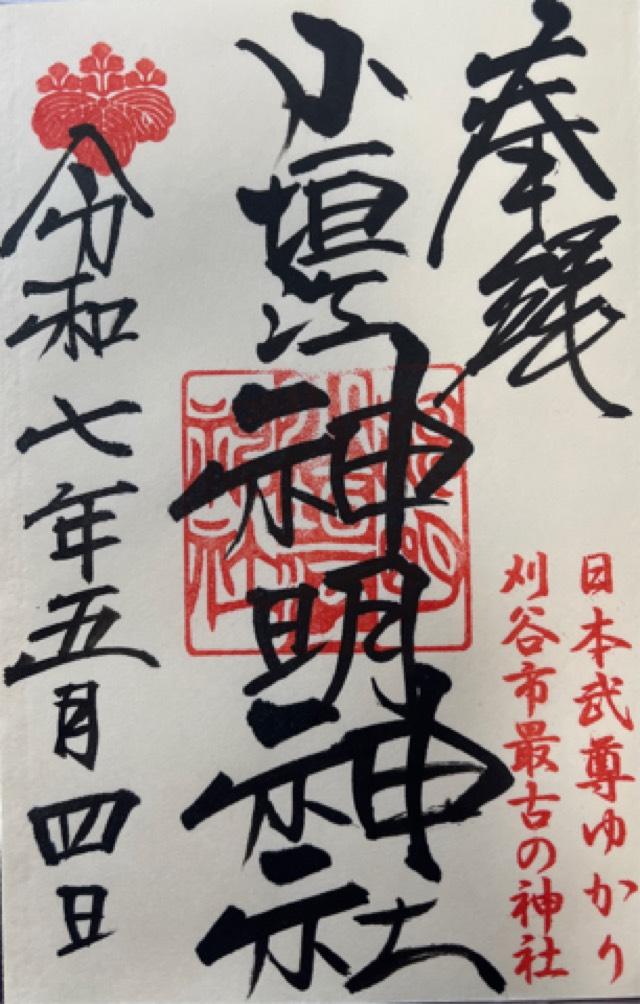 奉
日本武尊ゆかり
刈谷市最古の神社
小垣江神明神社
令和七年五月四日